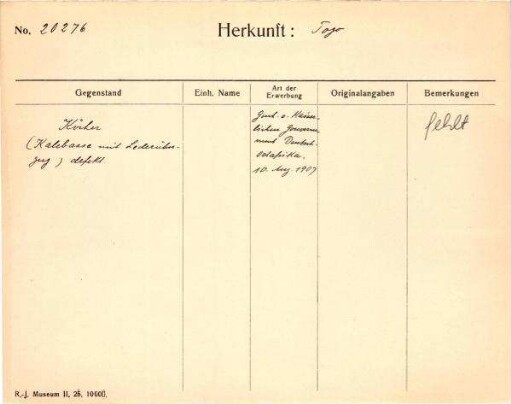 No. 20276
Herkunft: Togo
Gegenstand
Einh. Name
Art der
Erwerbung
Originalangaben
Bemerkungen
Köcher
(Kalebasse mit Lederüber-
zug) defekt
lichen Gouverne-
ment Deutsch
Ostafrika.
10. Aug. 1907
fehlt
R.-J. Museum II, 25, 10000.